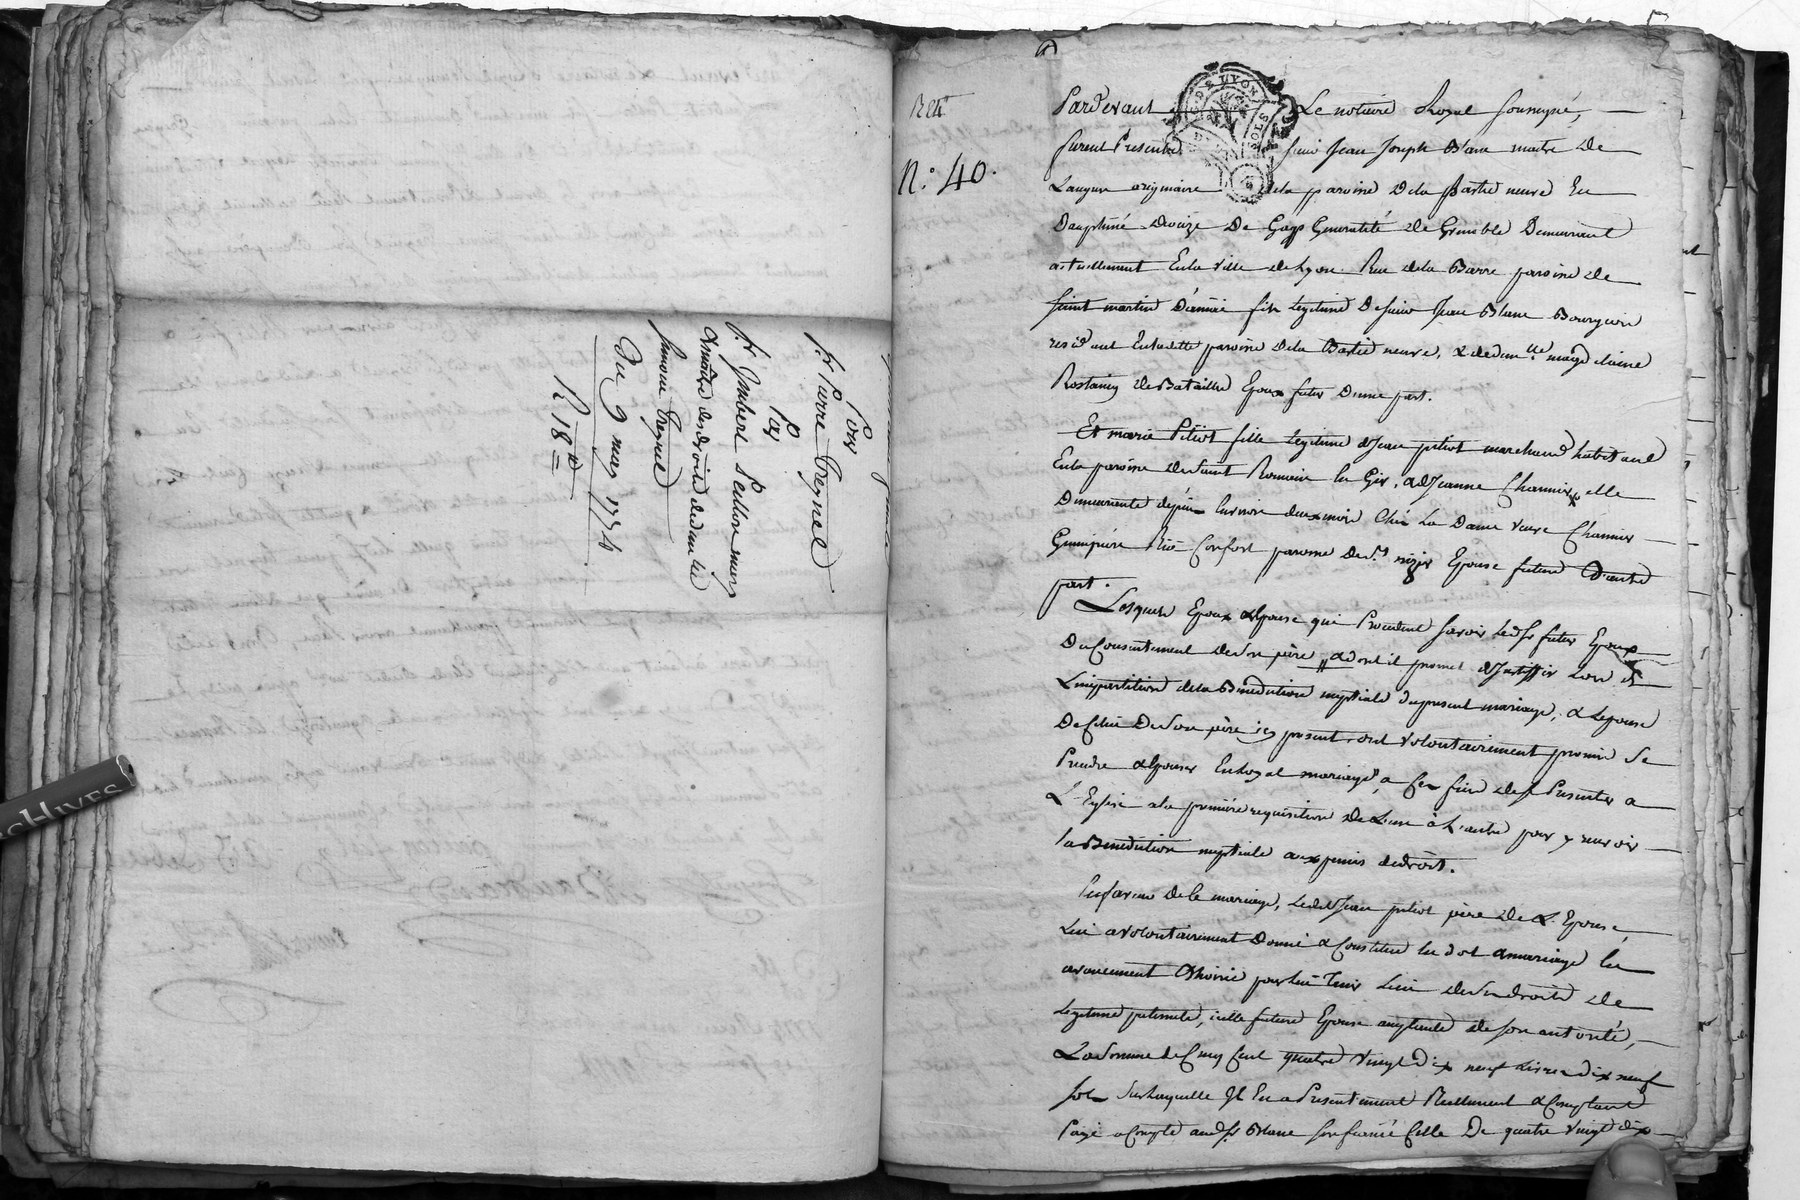 Pour
Sr Pierre Freynel
Par
Sr Imbert Peillon mary
& maître des droits de dam.lle
Simone Freynel
Du 9 mars 1774
R 18 =
N.° 40.
Pardevant Le notaire Royal soussigné,
furent Presents sieur Jean Joseph Blanc maitre de
Langue originaire de la paroisse de la Batie neuve En
Dauphiné dioceze De Gap Generalité de Grenoble Demeurant
actuellement En la Ville de Lyon Rue de la Barre paroisse de
Saint martin d'ainai fils legitime De sieur Jean Blanc Bourgeois
residant En ladite paroisse de la Batie neuve, & de dam.lle magd.elaine
Rostaing de Bataille Epoux futur d'une part.
Et marie Pitiot fille legitime de Jean pitiot marchand habitant
En la paroisse de saint Romain en Gier, & de Jeanne Charmier, elle
Demeurante depuis Environ deux mois Chés La Dame veuve Charmier
Guimpiere Rue Confort paroisse de St. nizier Epouse future D'autre
part.
Lesquels Epoux & Epouse qui Procedent savoir ledit Sr futur Epoux
Du Consentement de son père, dont il promet de Justiffier Lors de
L'impartition de la Benediction nuptiale du present mariage, & Lepouse
De celui De son père icy present, ont volontairement promis de se
Prendre & Epouser En Loyal mariage, a ces fins de se Presenter a
L'Eglise a la première requisition de L'un à L'autre pour y recevoir
la Benediction nuptiale aux peines de droit.
En faveur de ce mariage, ledit Jean pitiot père de L'Epouse,
Lui a volontairement Donné & Constitué En dot & mariage En
avancement d'hoirie pour lui Tenir Lieu de ses droits de
Legitime paternelle, icelle future Epouse acceptante de son autorité,
La somme de Cinq Cent quatre Vingt Dix neuf Livres dix neuf
sols Sur laquelle Il En a Presentement Reellement & Comptant
Payé a Compte audit Sr Blanc son fiancé Celle De quatre Vingt dix